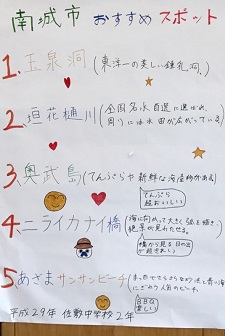 南城市 おすすめ スポット
1.玉泉洞(東洋一の美しい鍾乳洞。)
2.垣花樋川(全国名水百選に選ばれ、
周りには水田が広がっている)
3.奥武島(てんぷらや新鮮な海産物がある)
てんぷら
超おいしい!
4.ニライカナイ橋(海に向かって大きく弧を描き、
絶景が見わたせる。
橋から見る日の出
が超きれい!
5.あざまサンサンビーチ(まっ白でさらさらな砂浜と青い海
にぎわう人気のビーチ。
BBQ
楽しい
平成29年 佐敷中学校2年